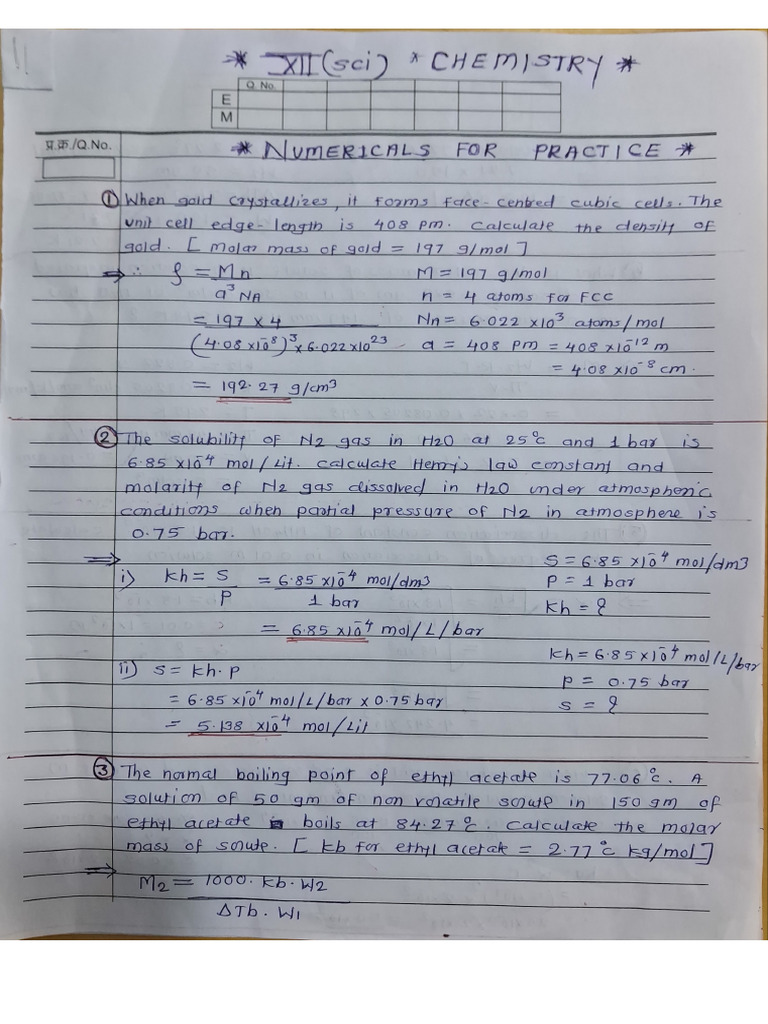 11
* XII (sci) * CHEMISTRY *
Q. No.
E
M
प्र.क्र./Q.No.
* NUMERICALS FOR PRACTICE *
① When gold crystallizes, it forms face-centred cubic cells. The
unit cell edge-length is 408 pm. Calculate the density of
gold. [ Molar mass of gold = 197 g/mol ]
⇒ ∴ ρ = Mn / a³ NA
M = 197 g/mol
n = 4 atoms for FCC
= 197 × 4 / (4.08 ×10⁻⁸)³ × 6.022×10²³
Nn = 6.022 ×10³ atoms/mol
a = 408 pm = 408 ×10⁻¹² m
= 4.08 ×10⁻⁸ cm.
= 192.27 g/cm³
② The solubility of N2 gas in H2O at 25°c and 1 bar is
6.85 ×10⁻⁴ mol/Lit. calculate Henry's law constant and
molarity of N2 gas dissolved in H2O under atmospheric
conditions when partial pressure of N2 in atmosphere is
0.75 bar.
⇒
S = 6.85 ×10⁻⁴ mol/dm3
i) Kh = S / P = 6.85 ×10⁻⁴ mol/dm3 / 1 bar
P = 1 bar
Kh = ?
= 6.85 ×10⁻⁴ mol/L/bar
Kh = 6.85 ×10⁻⁴ mol/L/bar
ii) S = Kh · P
P = 0.75 bar
= 6.85 ×10⁻⁴ mol/L/bar × 0.75 bar
S = ?
= 5.138 ×10⁻⁴ mol/Lit
③ The normal boiling point of ethyl acetate is 77.06°c. A
solution of 50 gm of non volatile solute in 150 gm of
ethyl acetate boils at 84.27°c. Calculate the molar
mass of solute. [ Kb for ethyl acetate = 2.77°c kg/mol ]
⇒ M2 = 1000 · Kb · W2 / ΔTb · W1